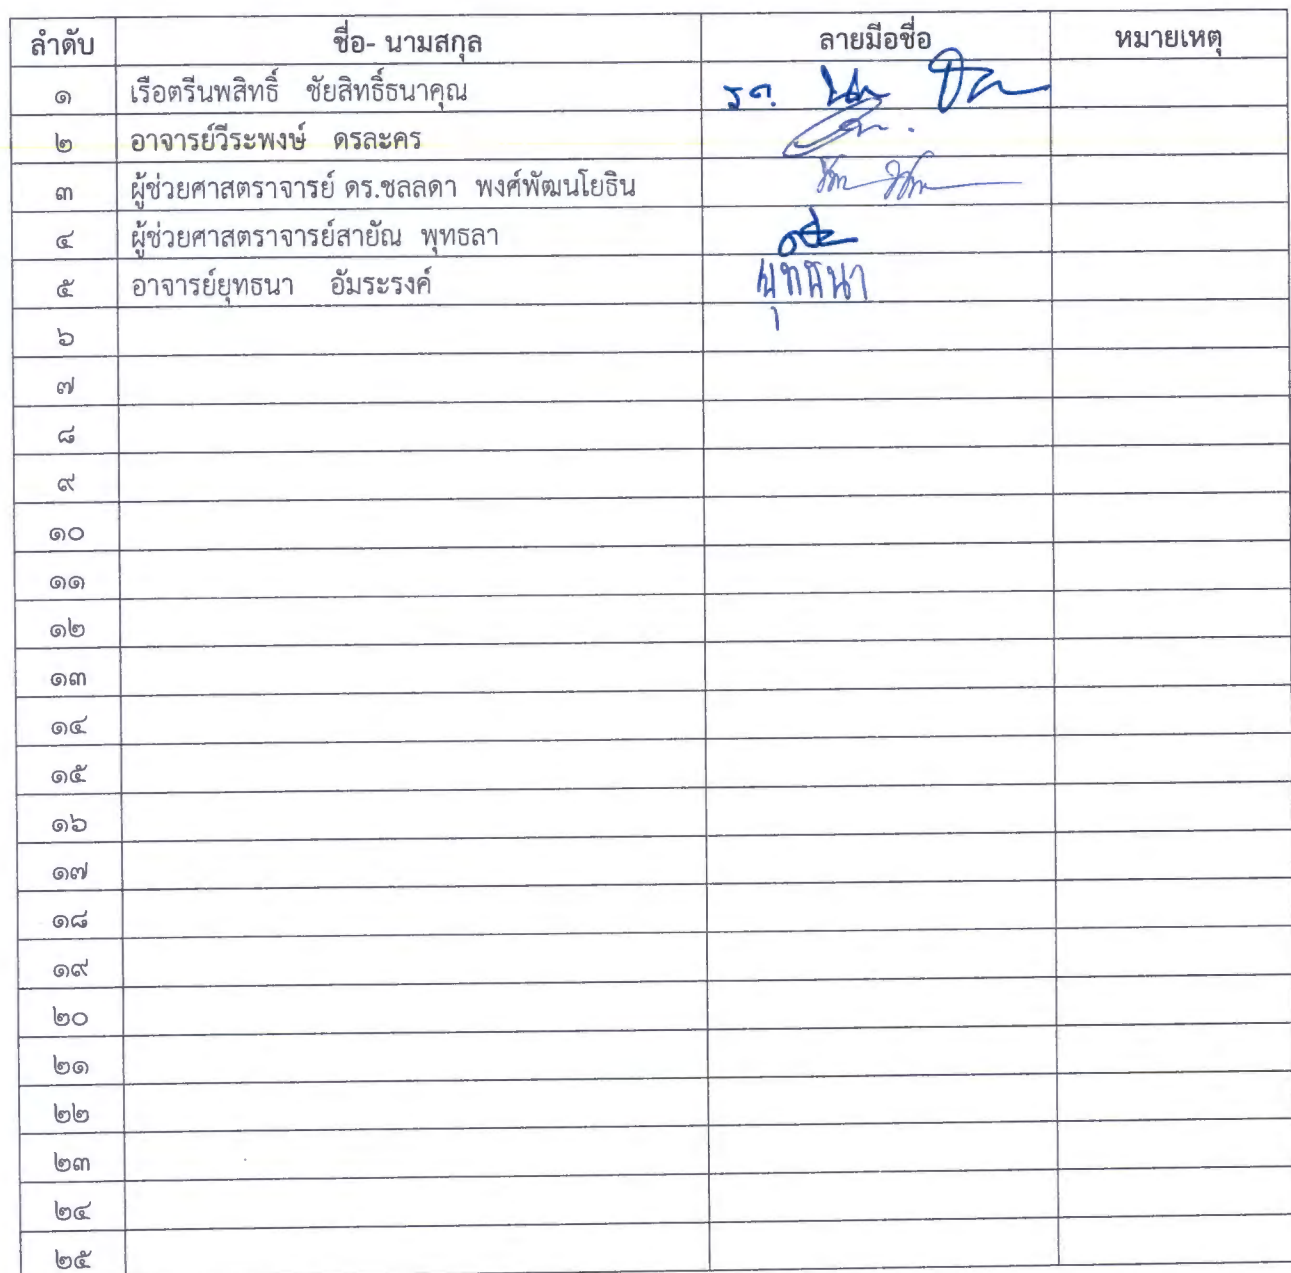 ลำดับ ชื่อ- นามสกุล ลายมือชื่อ หมายเหตุ
๑ เรือตรีนพสิทธิ์ ชัยสิทธิ์ธนาคุณ ร.ต.
๒ อาจารย์วีระพงษ์ ดรละคร
๓ ผู้ช่วยศาสตราจารย์ ดร.ชลลดา พงศ์พัฒนโยธิน
๔ ผู้ช่วยศาสตราจารย์สายัณ พุทธลา
๕ อาจารย์ยุทธนา อัมระรงค์ ยุทธนา
๖
๗
๘
๙
๑๐
๑๑
๑๒
๑๓
๑๔
๑๕
๑๖
๑๗
๑๘
๑๙
๒๐
๒๑
๒๒
๒๓
๒๔
๒๕